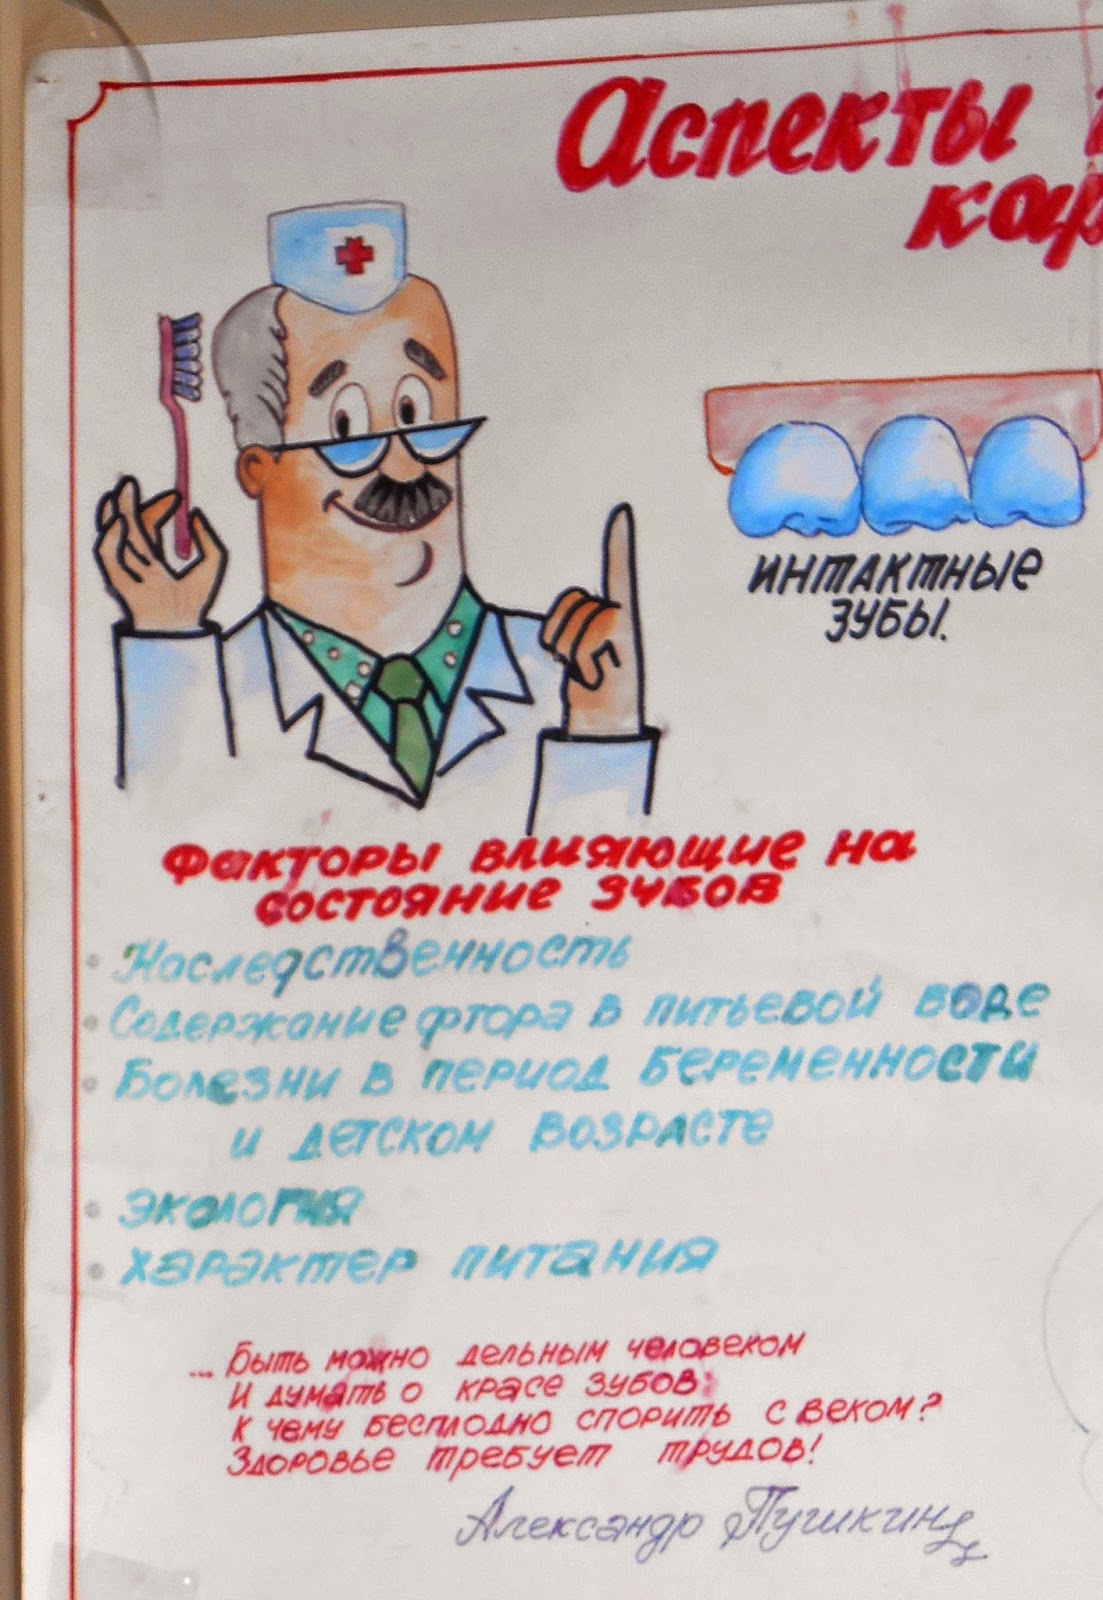 Аспекты
ИНТАКТНЫЕ
ЗУБЫ.
Факторы влияющие на
состояние зубов
• Наследственность
• Содержание фтора в питьевой воде
• Болезни в период беременности
и детском возрасте
• Экология
• Характер питания
... Быть можно дельным человеком
И думать о красе зубов:
К чему бесплодно спорить с веком?
Здоровье требует трудов!
Александр Пушкин